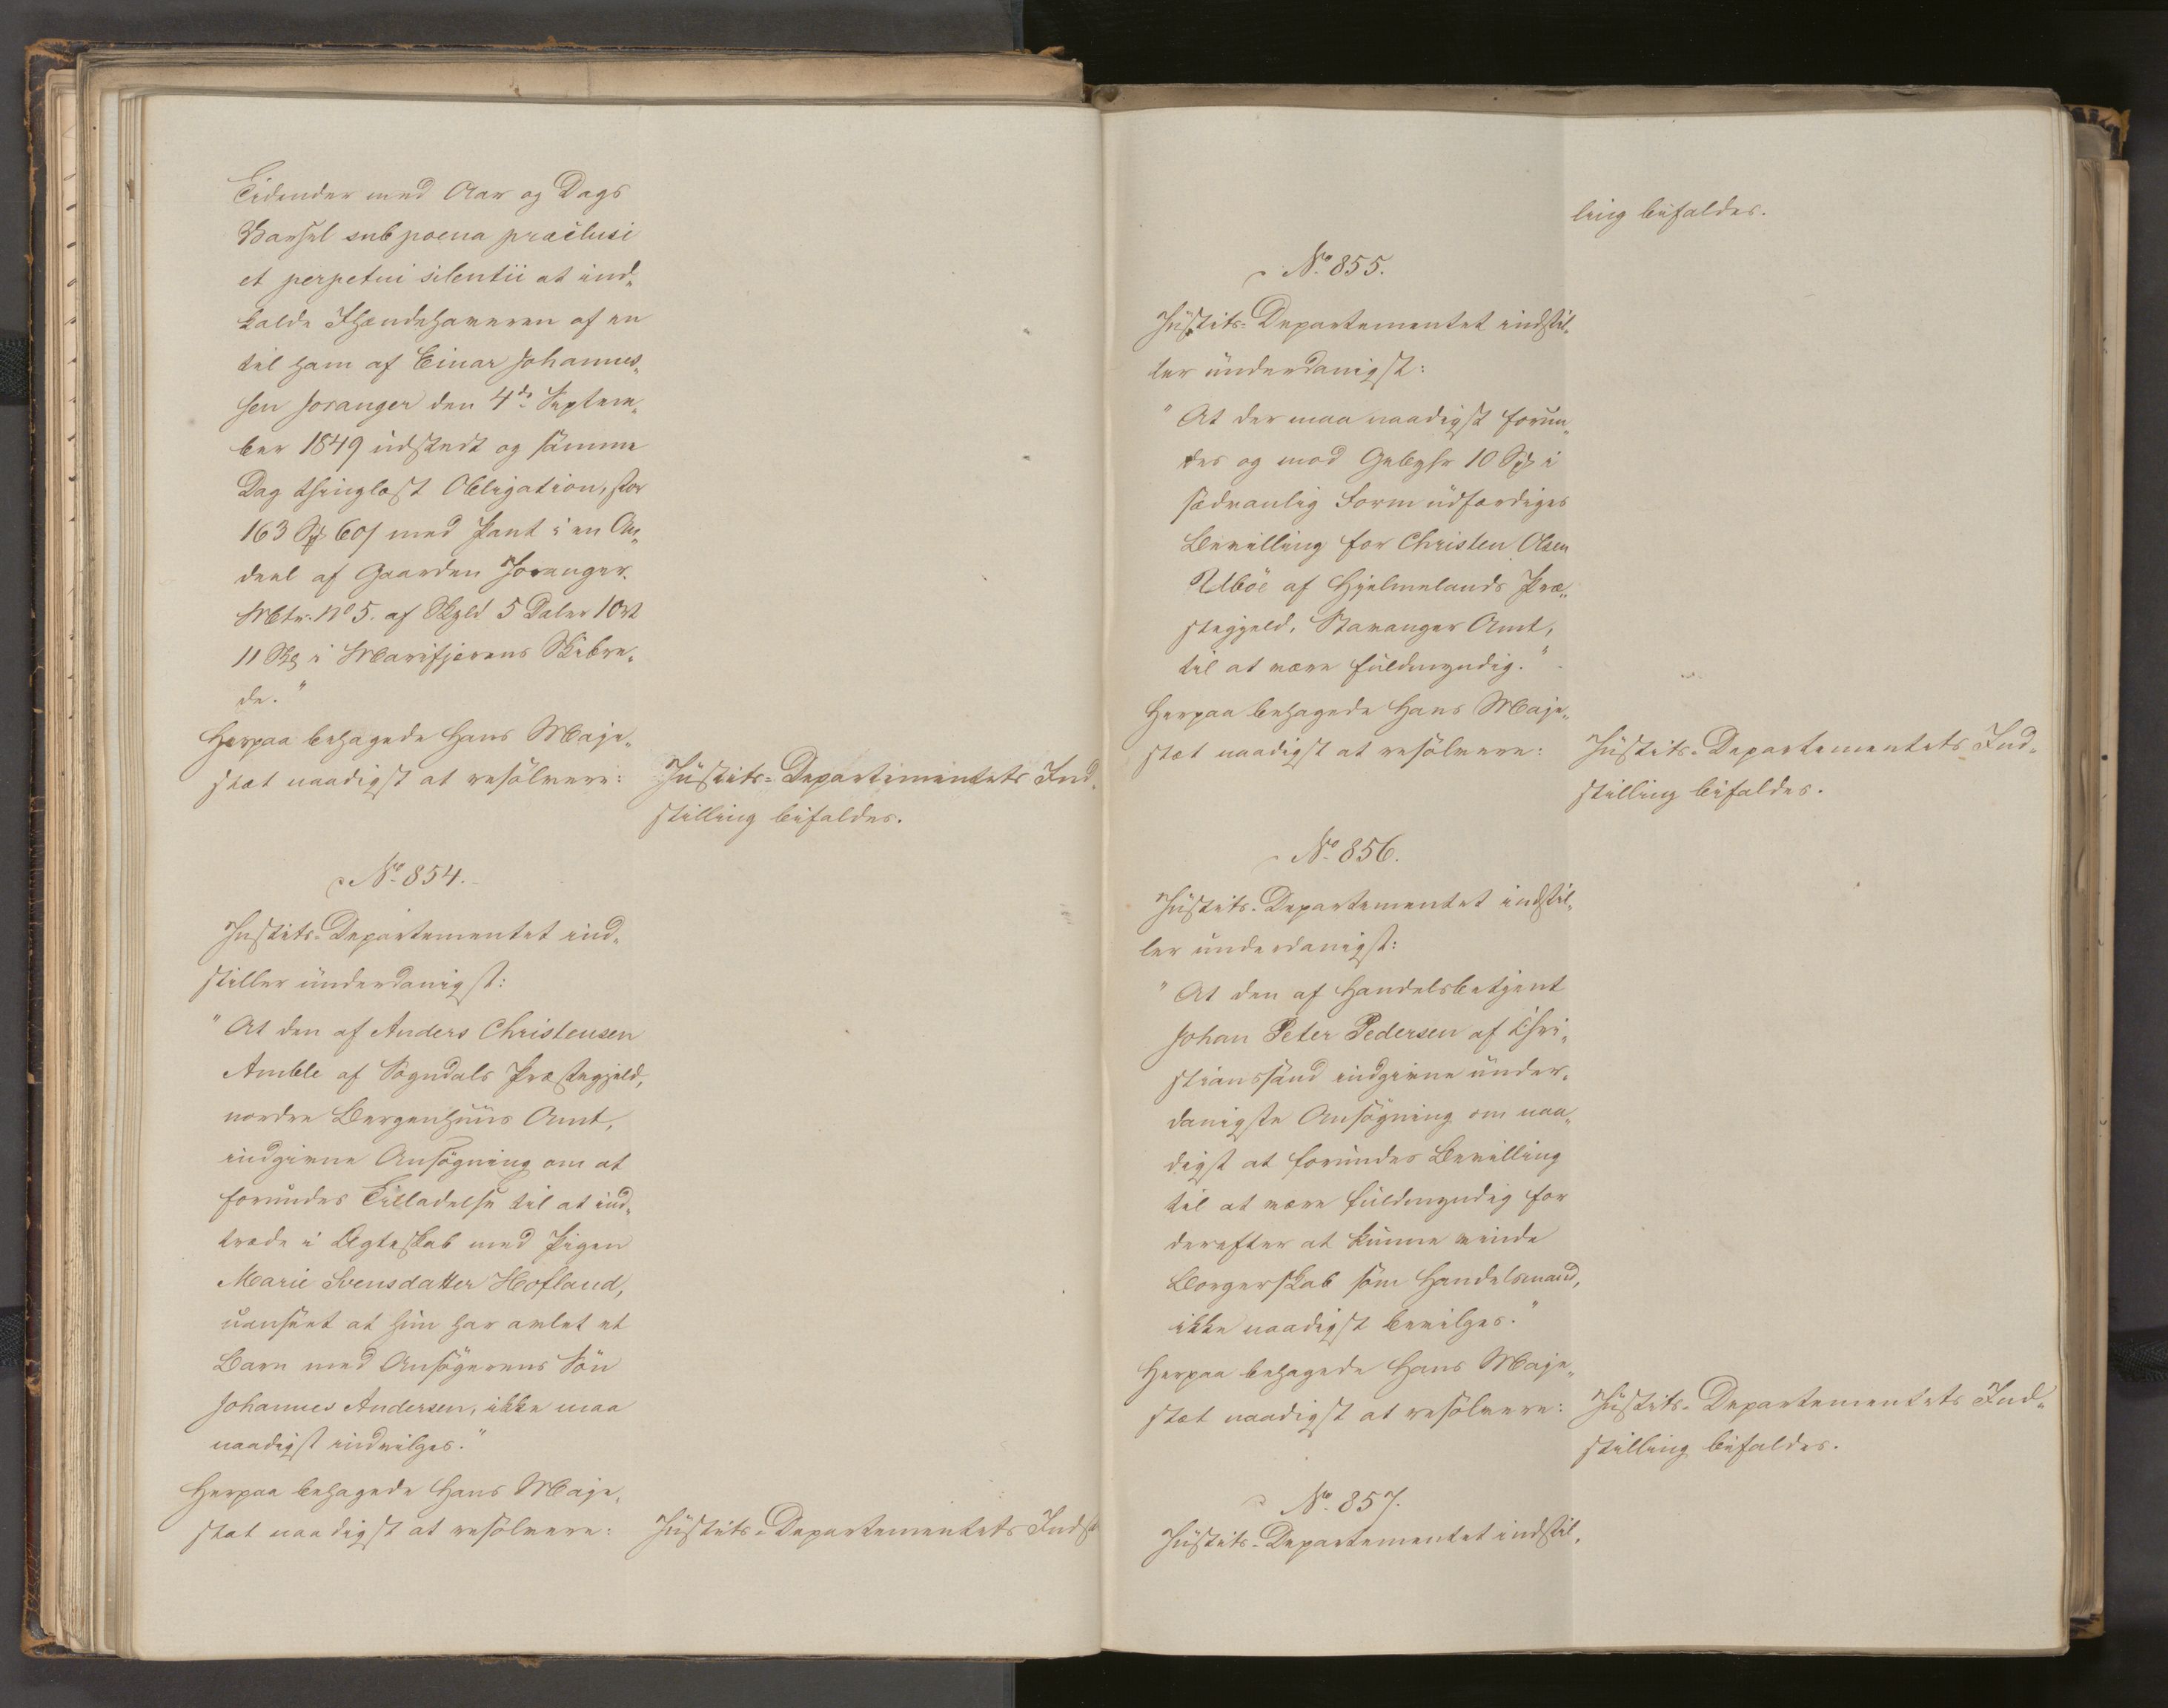 Tidender med Aar og Dags
Varsel sub poena præclusi
et perpetui silentii at ind-
kalde Ihændehaveren af en
til ham af Einar Johannes-
sen Joranger den 4de Septem-
ber 1849 udstedt og samme
Dag thinglæst Obligation, stor
163 Spd 60 s med Pant i en An-
deel af Gaarden Joranger
Mtr. No 5. af Skyld 5 Daler 1 Ort
11 Sk i Marifjærens Skibre-
de."
Herpaa behagede Hans Maje-
stæt naadigst at resolvere:
Justits-Departementets Ind-
stilling bifaldes.
No 854.
Justits-Departementet ind-
stiller underdanigst:
"At den af Anders Christensen
Amble af Sogndals Præstegjeld,
nordre Bergenhuus Amt,
indgivne Ansøgning om at
forundes Tilladelse til at ind-
træde i Ægteskab med Pigen
Marie Svensdatter Hofland,
uanseet at hun har avlet et
Barn med Ansøgerens Søn
Johannes Andersen, ikke maa
naadigst indvilges."
Herpaa behagede Hans Maje-
stæt naadigst at resolvere:
Justits-Departementets Indstil
ling bifaldes.
No 855.
Justits-Departementet indstil-
ler underdanigst:
"At der maa naadigst forun-
des og mod Gebyhr 10 Spd i
sædvanlig Form udfærdiges
Bevilling for Christen Olsen
Ulbøe af Hjelmelands Præ-
stegjeld, Stavanger Amt,
til at være fuldmyndig."
Herpaa behagede Hans Maje-
stæt naadigst at resolvere:
Justits-Departementets Ind-
stilling bifaldes.
No 856.
Justits-Departementet indstil-
ler underdanigst:
"At den af Handelsbetjent
Johan Peter Pedersen af Chri-
stianssand indgivne under-
danigste Ansøgning om naa-
digst at forundes Bevilling
til at være fuldmyndig for
derefter at kunne vinde
Borgerskab som Handelsmand,
ikke naadigst bevilges."
Herpaa behagede Hans Maje-
stæt naadigst at resolvere:
Justits-Departementets Ind-
stilling bifaldes.
No 857.
Justits-Departementet indstil-